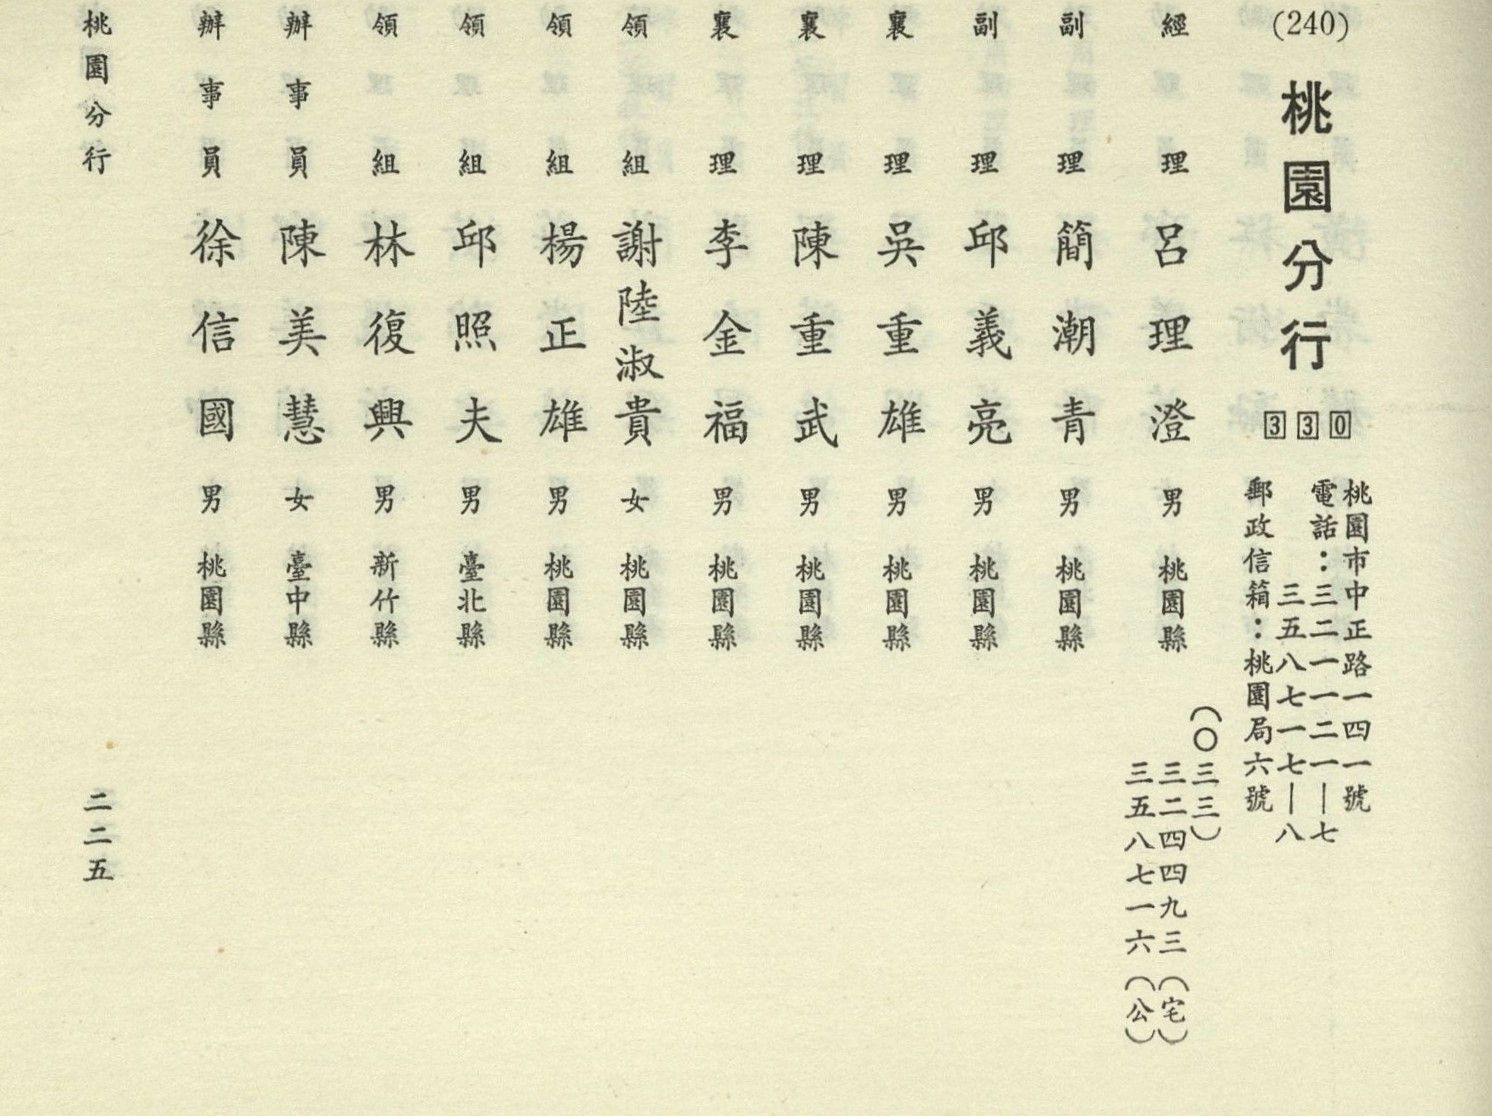 (240)
桃園分行
330
桃園市中正路一四一號
電話：三二一一二一｜七
三五八七一七｜八
郵政信箱：桃園局六號
經理 呂理澄 男 桃園縣
（〇三三）
三二四四九三（宅）
三五八七一六（公）
副理 簡潮青 男 桃園縣
副理 邱義亮 男 桃園縣
襄理 吳重雄 男 桃園縣
襄理 陳重武 男 桃園縣
襄理 李金福 男 桃園縣
領組 謝陸淑貴 女 桃園縣
領組 楊正雄 男 桃園縣
領組 邱照夫 男 臺北縣
領組 林復興 男 新竹縣
辦事員 陳美慧 女 臺中縣
辦事員 徐信國 男 桃園縣
桃園分行
二二五